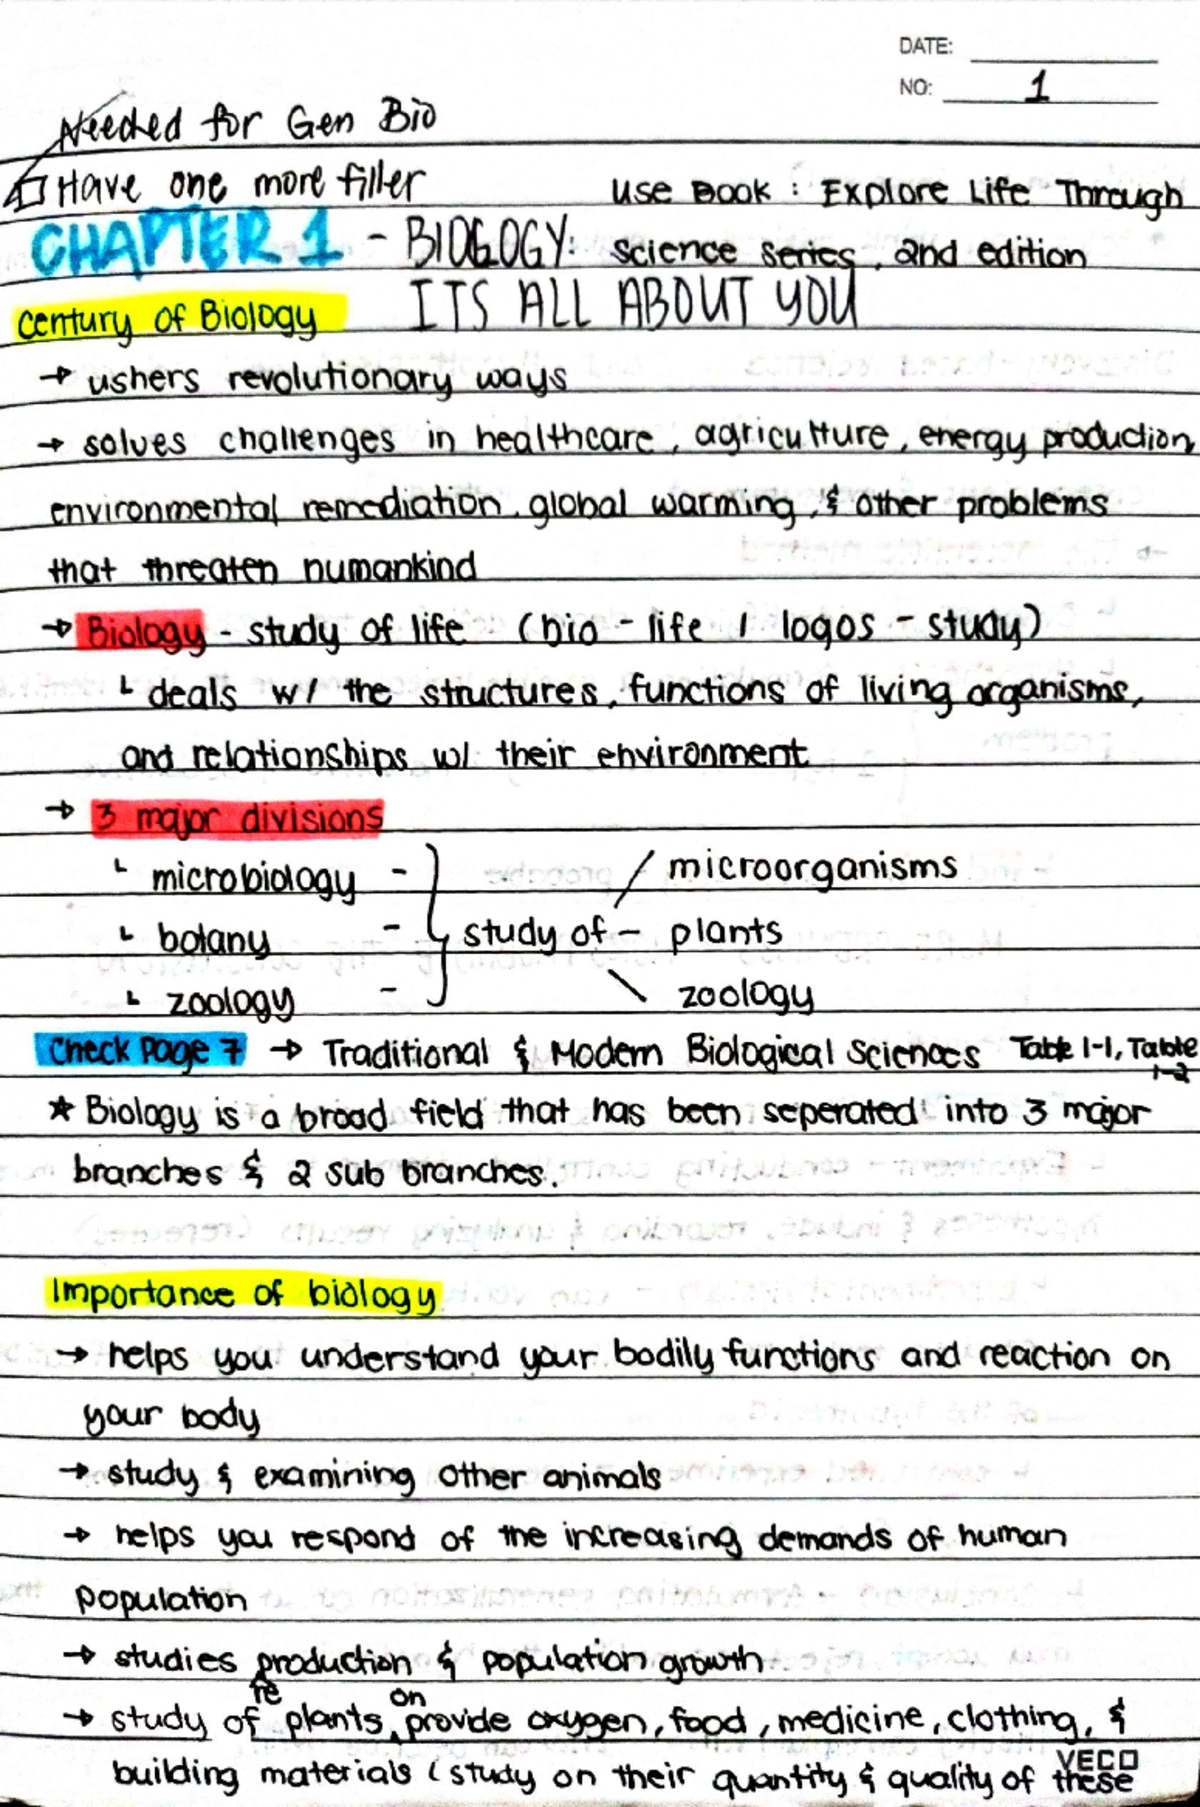 DATE:
NO: 1
Needed for Gen Bio
Have one more filler
Use Book : Explore Life Through
CHAPTER 1 - BIOGOGY: Science Series, 2nd edition
ITS ALL ABOUT YOU
Century of Biology
→ ushers revolutionary ways
→ solves challenges in healthcare, agriculture, energy production,
environmental remediation, global warming, & other problems
that threaten humankind
→ Biology - study of life (bio - life / logos - study)
└ deals w/ the structures, functions of living organisms,
and relationships w/ their environment
→ 3 major divisions
└ microbiology - } study of / microorganisms
└ botany - } study of - plants
└ zoology - } study of \ zoology
Check Page 7 → Traditional & Modern Biological Sciences Table 1-1, Table 1-2
★ Biology is a broad field that has been seperated into 3 major
branches & 2 sub branches.
Importance of biology
→ helps you understand your bodily functions and reaction on
your body
→ study & examining other animals
→ helps you respond of the increasing demands of human
population
→ studies production & population growth
re
on
→ study of plants, provide oxygen, food, medicine, clothing, &
building materials (study on their quantity & quality of these
VECO